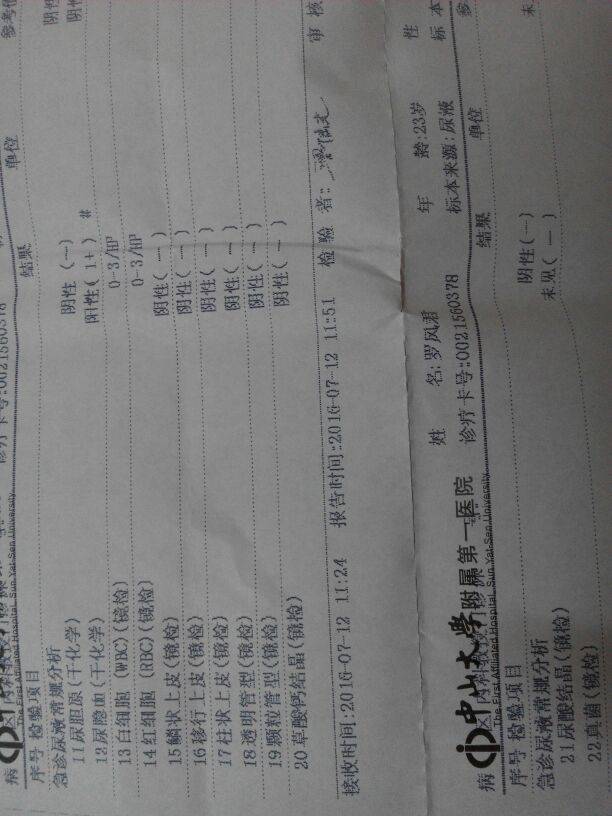 诊疗卡号:0021560378
The First Affiliated Hospital, Sun Yat-Sen University
序号 检验项目 结果 单位
急诊尿液常规分析
11尿胆原(干化学) 阴性(—)
12尿隐血(干化学) 阳性( 1+) #
13白细胞 (WBC)(镜检) 0-3/HP
14红细胞 (RBC)(镜检) 0-3/HP
15鳞状上皮(镜检) 阴性( — )
16移行上皮(镜检) 阴性( — )
17柱状上皮(镜检) 阴性( — )
18透明管型(镜检) 阴性( — )
19颗粒管型(镜检) 阴性( — )
20草酸钙结晶(镜检) 阴性( — )
接收时间:2016-07-12 11:24 报告时间:2016-07-12 11:51 检 验 者: 审 核
中山大学附属第一医院
The First Affiliated Hospital, Sun Yat-Sen University
姓 名:罗凤君 年 龄:23岁 性
诊疗卡号:0021560378 标本来源:尿液 标 本
病
序号 检验项目 结果 单位 参
急诊尿液常规分析
21尿酸结晶(镜检) 阴性(—)
22真菌(镜检) 未见( — ) 未